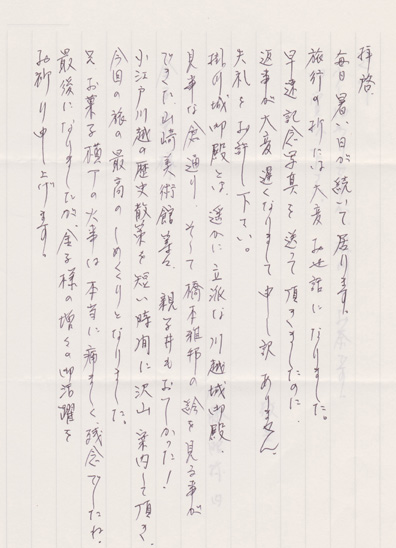 拝啓
毎日暑い日が続いて居ります。
旅行の折には大変お世話になりました。
早速記念写真を送って頂きましたのに
返事が大変遅くなりまして申し訳ありません。
失礼をお許し下さい。
掛川城御殿とは、遥かに立派な川越城御殿
見事な倉通り、そして橋本雅邦の絵を見る事が
できた山崎美術館等々、親子丼もおいしかった!
小江戸川越の歴史散策を短い時間に沢山案内して頂き、
今回の旅の最高のしめくくりとなりました。
お菓子横丁の火事は本当に痛ましく残念でしたね。
最後になりましたが、金子様の増々の御活躍を
お祈り申し上げます。